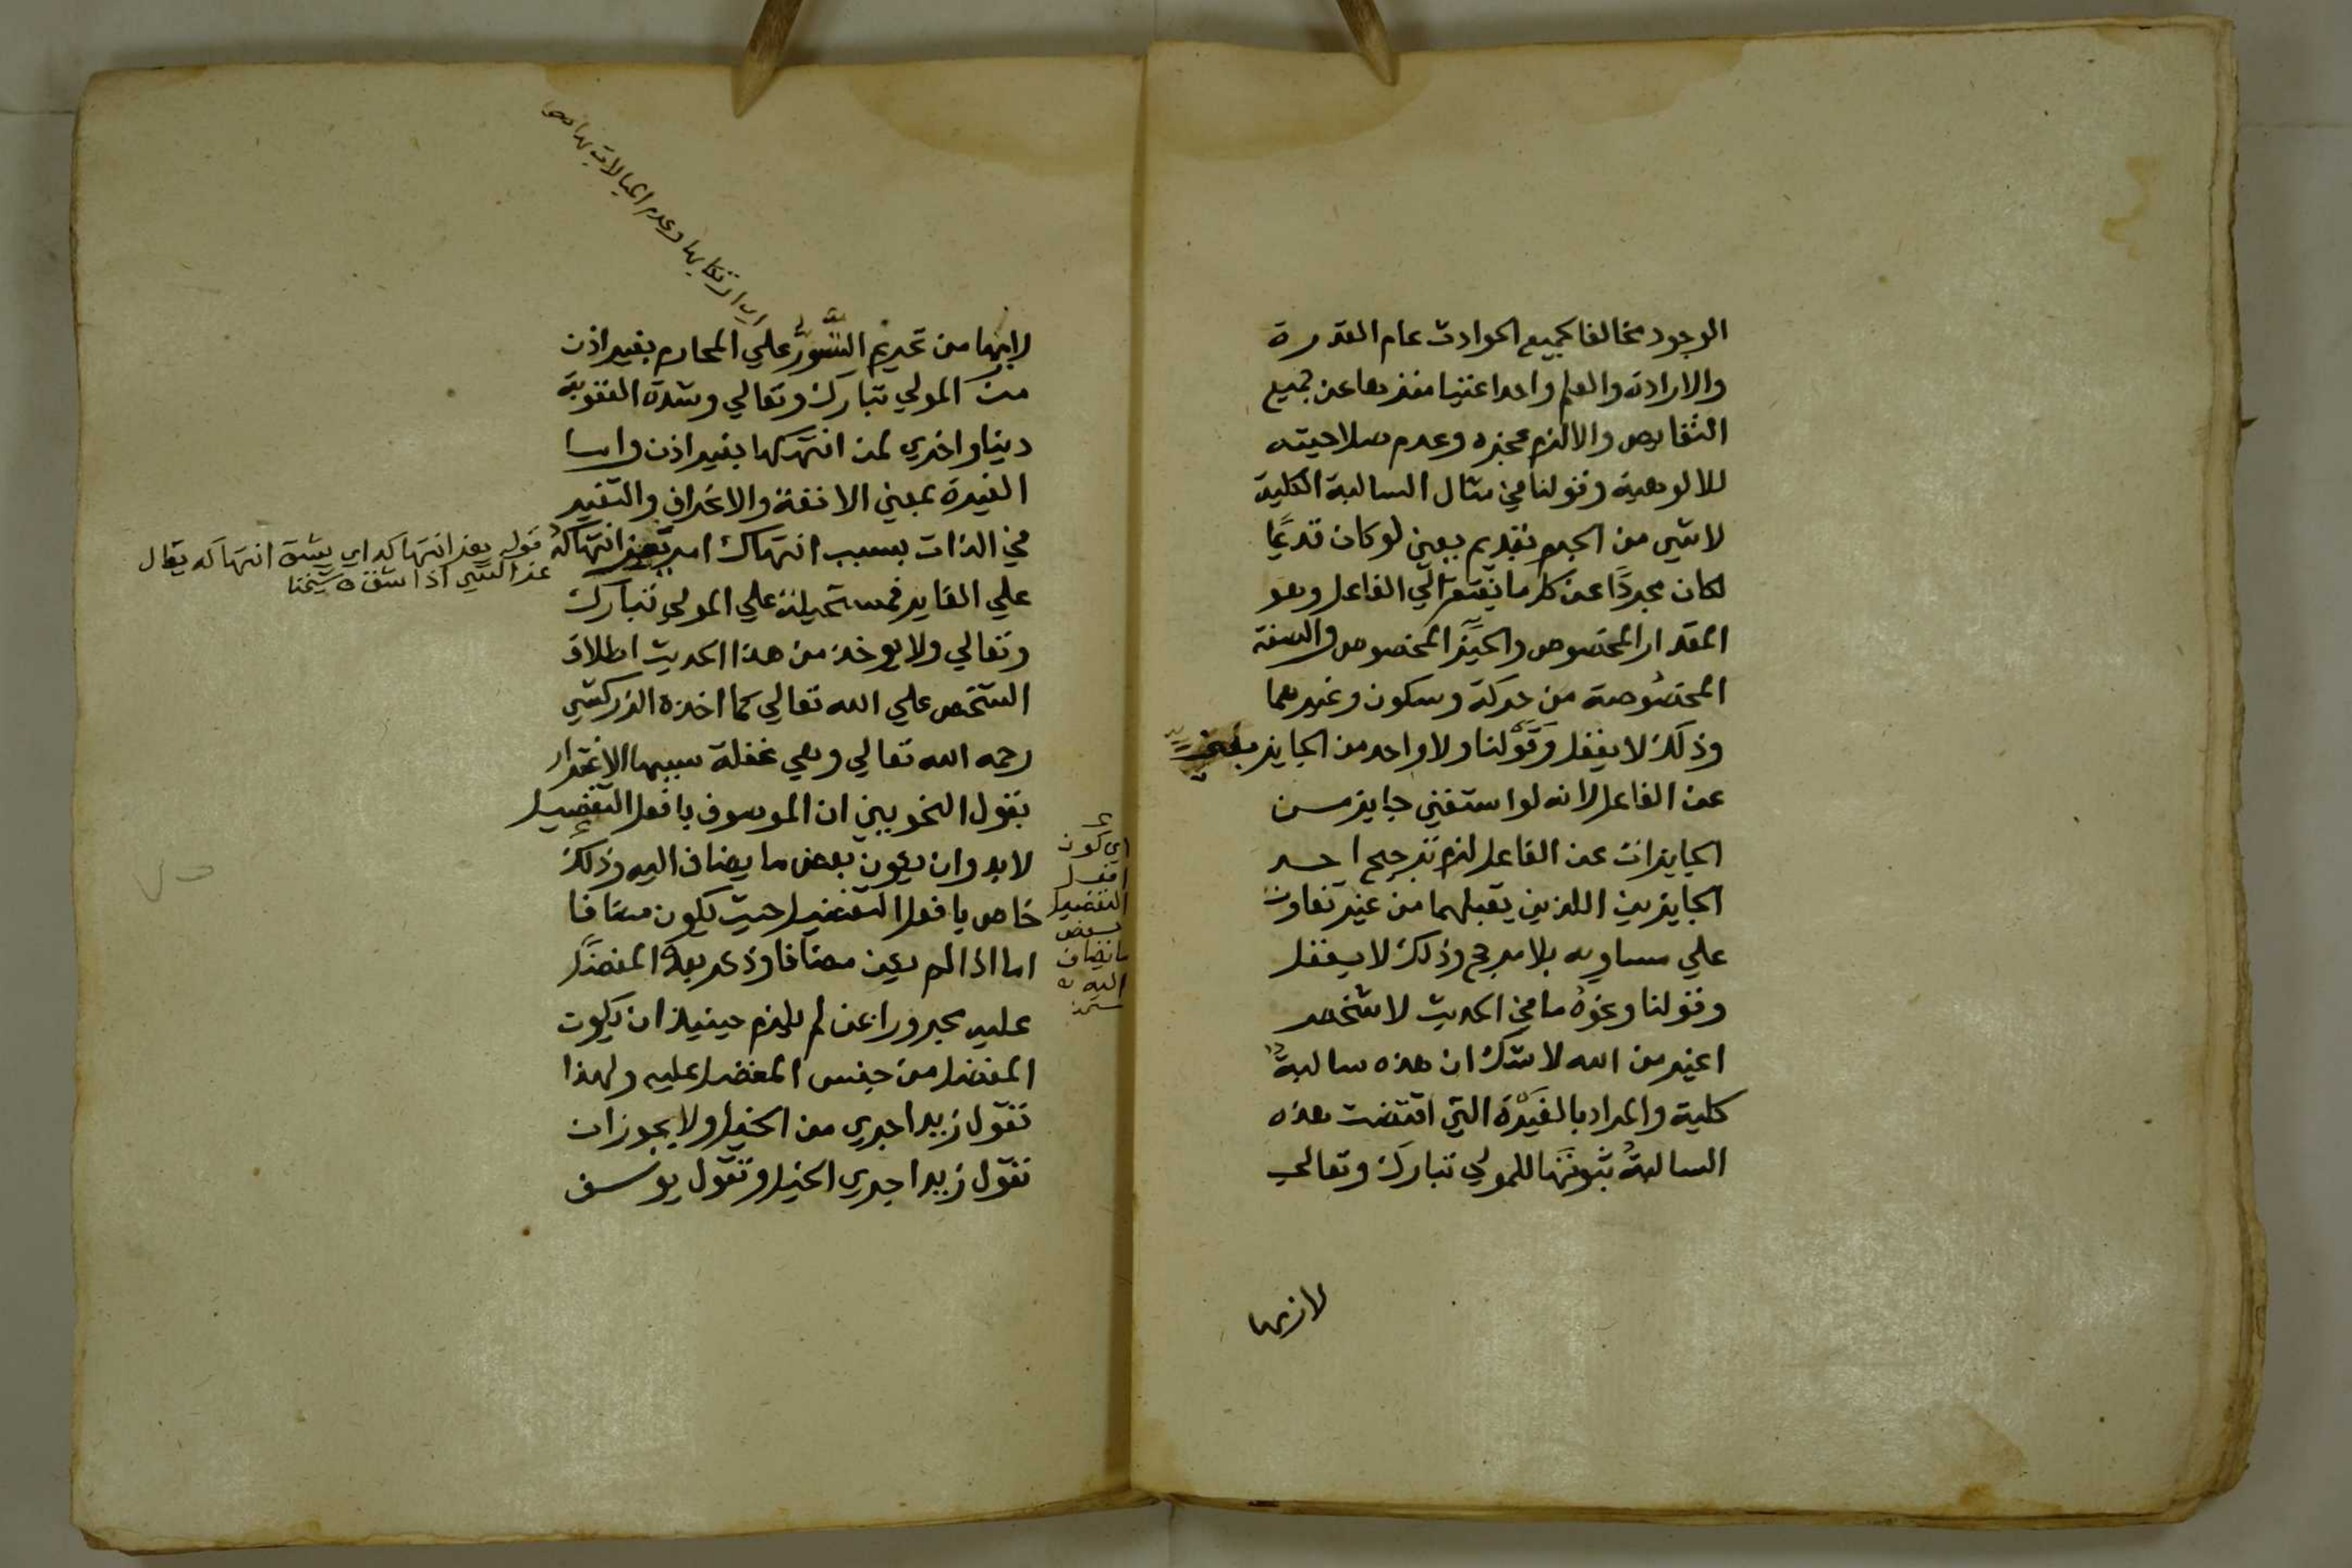 الوجود مخالفا لجميع الحوادث عام القدرة
والارادة والعلم واحدا غنيا منزها عن جميع
النقايص والا لزم عجزه وعدم صلاحيته
للالوهية وقولنا في مثال السالبة الكلية
لا شي من الجرم بقديم يعني لو كان قديمًا
لكان مجردًا عن كل ما يفتقر الي الفاعل وهو
المقدار المخصوص والحيّز المخصوص والصفة
المخصوصة من حركة وسكون وغيرهما
وذلك لا يعقل وقَولنا ولا واحد من الجايز بغني
عن الفاعل لانه لو استغني جايز من
الجايزات عن الفاعل لزم ترجيح احد
الجايزين اللذين يقبلهما من غير تفاوت
علي مساويه بلا مرجح وذلك لا يعقل
وقولنا ونحوه ما في الحديث لا شخص
اغير من الله لا شك ان هذه سالبة
كلية والمراد بالغَيْرة التي اقتضت هذه
السالبةُ ثبوتَها للمولي تبارك وتعالي
لازمها
لازمها من تحريم التَّسَوُّر علي المحارم بغير اذن
من المولي تبارك وتعالي وشدة العقوبة
دنيا واخري لمن انتهكها بغير اذن واما
الغيرة بمعني الانفة والانحراف والتغير
في الذات بسبب انتهاك امر يعز انتهاكهُ
علي الغاير فمستحيلة علي المولي تبارك
وتعالي ولا يوخذ من هذا الحديث اطلاق
الشخص علي الله تعالي كما اخذه الزركشي
رحمه الله تعالي وهي غفلة سببها الاغترار
بقول النحويين ان الموصوف بافعل التفضيل
لابد وان يكون بعض ما يضاف اليه وذلك
خاص بافعل التفضيل حيث يكون مضافا
اما اذا لم يكن مضافا وذكر بعده المفضَّل
عليه مجرورا بمن لم يلزم حينيذ ان يكون
المفضل من جنس المفضل عليه ولهذا
تقول زيد اجري من الخيل ولا يجوز ان
تقول زيد اجري الخيل وتقول يوسف
قوله يعز انتهاكه اي يشق انتهاكه يقال
عز الشي اذا شق ه شيخنا
اي كون
افعل
التفضيل
بعض
ما يضاف
اليه